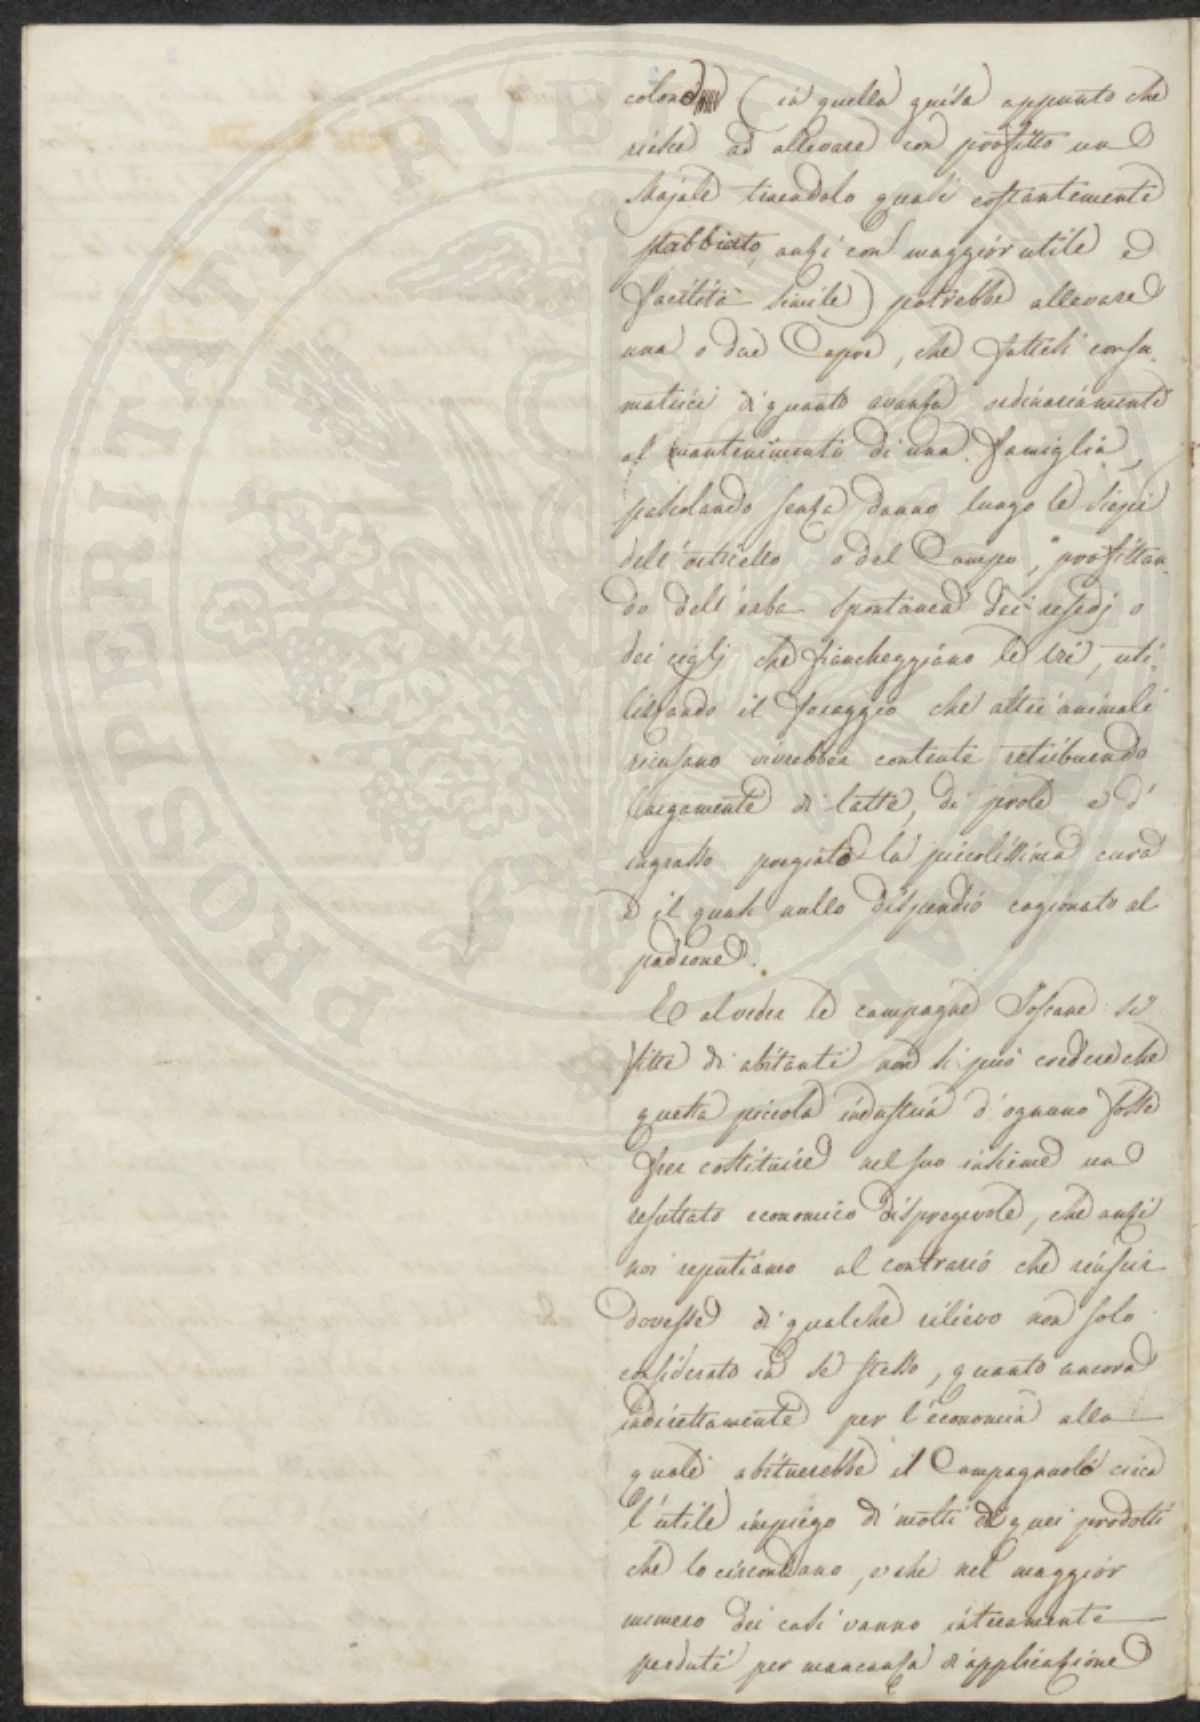 colono (in quella guisa appunto che
riesce ad allevare con profitto un
Majale tenendolo quasi costantemente
stabbiato, anzi con maggior utile e
facilità simile) potrebbe allevare
una o due Capre, che fattesi consu-
matrici di quanto avanza ordinariamente
al mantenimento di una famiglia,
pascolando senza danno lungo le siepi
dell'orticello o del Campo, profittan-
do dell'erba spontanea dei resedj o
deiciglj che fiancheggiano le vie, uti-
lizzando il foraggio che altri animali
ricusano vivrebber contente retribuendo
largamente di latte, di prole e d'
ingrasso la piccolissima cura
e il quasi nullo dispendio cagionato al
padrone.
E al veder le campagne Toscane sì
fitte di abitanti non si può credere che
questa piccola industria d'ognuno fosse
per costituire nel suo insieme un
resultato economico dispregevole, che anzi
noi reputiamo al contrario che riuscir
dovesse di qualche rilievo non solo
considerato in se stesso, quanto ancora
indirettamente per l'economia alla
quale abituerebbe il Campagnolo circa
l'utile impiego di molti di quei prodotti
che lo circondano, e che nel maggior
numero dei casi vanno interamente
perduti per mancanza di applicazione
PROSPERITATI PVBLICAE